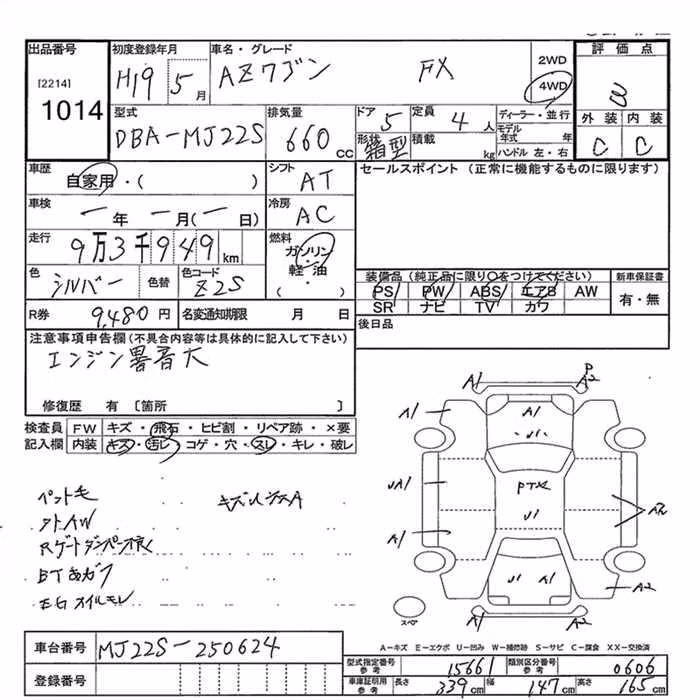 出品番号 初度登録年月 車名・グレード 2WD 評価点
[2214] H19 5月 AZワゴン FX 4WD
1014
型式 排気量 ドア 5 定員 4人 ディーラー・並行 外装 内装
DBA-MJ22S 660cc 形状 箱型 積載 kg モデル年式 年 C C
ハンドル 左・右
車歴 自家用・( ) シフト AT セールスポイント(正常に機能するものに限ります)
車検 ー年 ー月(ー日) 冷房 AC
走行 9万3千949km 燃料 ガソリン・軽油
( )
色 シルバー 色替 色コード Z2S 装備品(純正品に限り○をつけてください) 新車保証書
PS PW ABS エアB AW 有・無
SR ナビ TV カワ
R券 9,480円 名変通知期限 月 日 後日品
注意事項申告欄(不具合内容等は具体的に記入して下さい)
エンジン異音大
修復歴 有 [箇所 ]
検査員 FW キズ・飛石・ヒビ割・リペア跡・×要
記入欄 内装 キズ・汚レ・コゲ・穴・スレ・キレ・破レ
ペット毛
外AW
Rゲートダンパー不良
A1 P A2
A1 A1
UA1 PTX A2
U1
A1
U1 A1 A2
A1 A2
スペア
A-キズ E-エクボ U-凹み W-補修跡 S-サビ C-腐食 XX-交換済
車台番号 MJ22S-250624
型式指定番号 参考 15661 類別区分番号 参考 0606
登録番号 車庫証明用 参考 長さ 339cm 幅 147cm 高さ 165cm